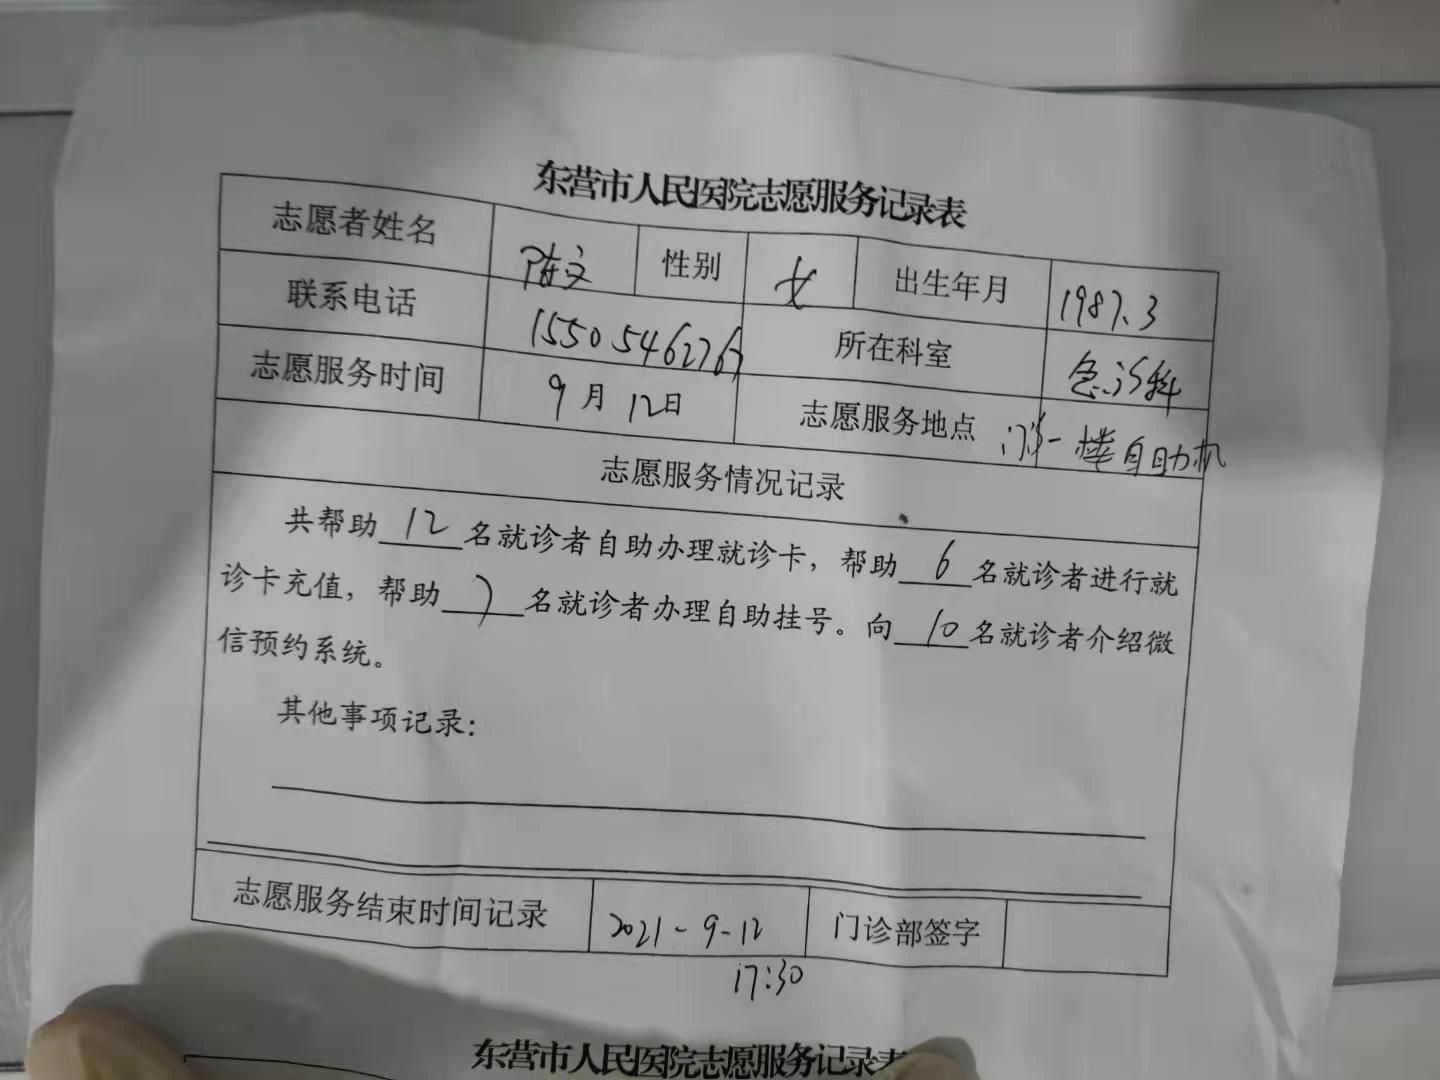 东营市人民医院志愿服务记录表
志愿者姓名 陈文 性别 女 出生年月 1987.3
联系电话 15505462767 所在科室 急诊科
志愿服务时间 9月12日 志愿服务地点 门诊一楼自助机
志愿服务情况记录
共帮助12名就诊者自助办理就诊卡，帮助6名就诊者进行就
诊卡充值，帮助7名就诊者办理自助挂号。向10名就诊者介绍微
信预约系统。
其他事项记录：
志愿服务结束时间记录 2021-9-12 门诊部签字
17:30
东营市人民医院志愿服务记录表